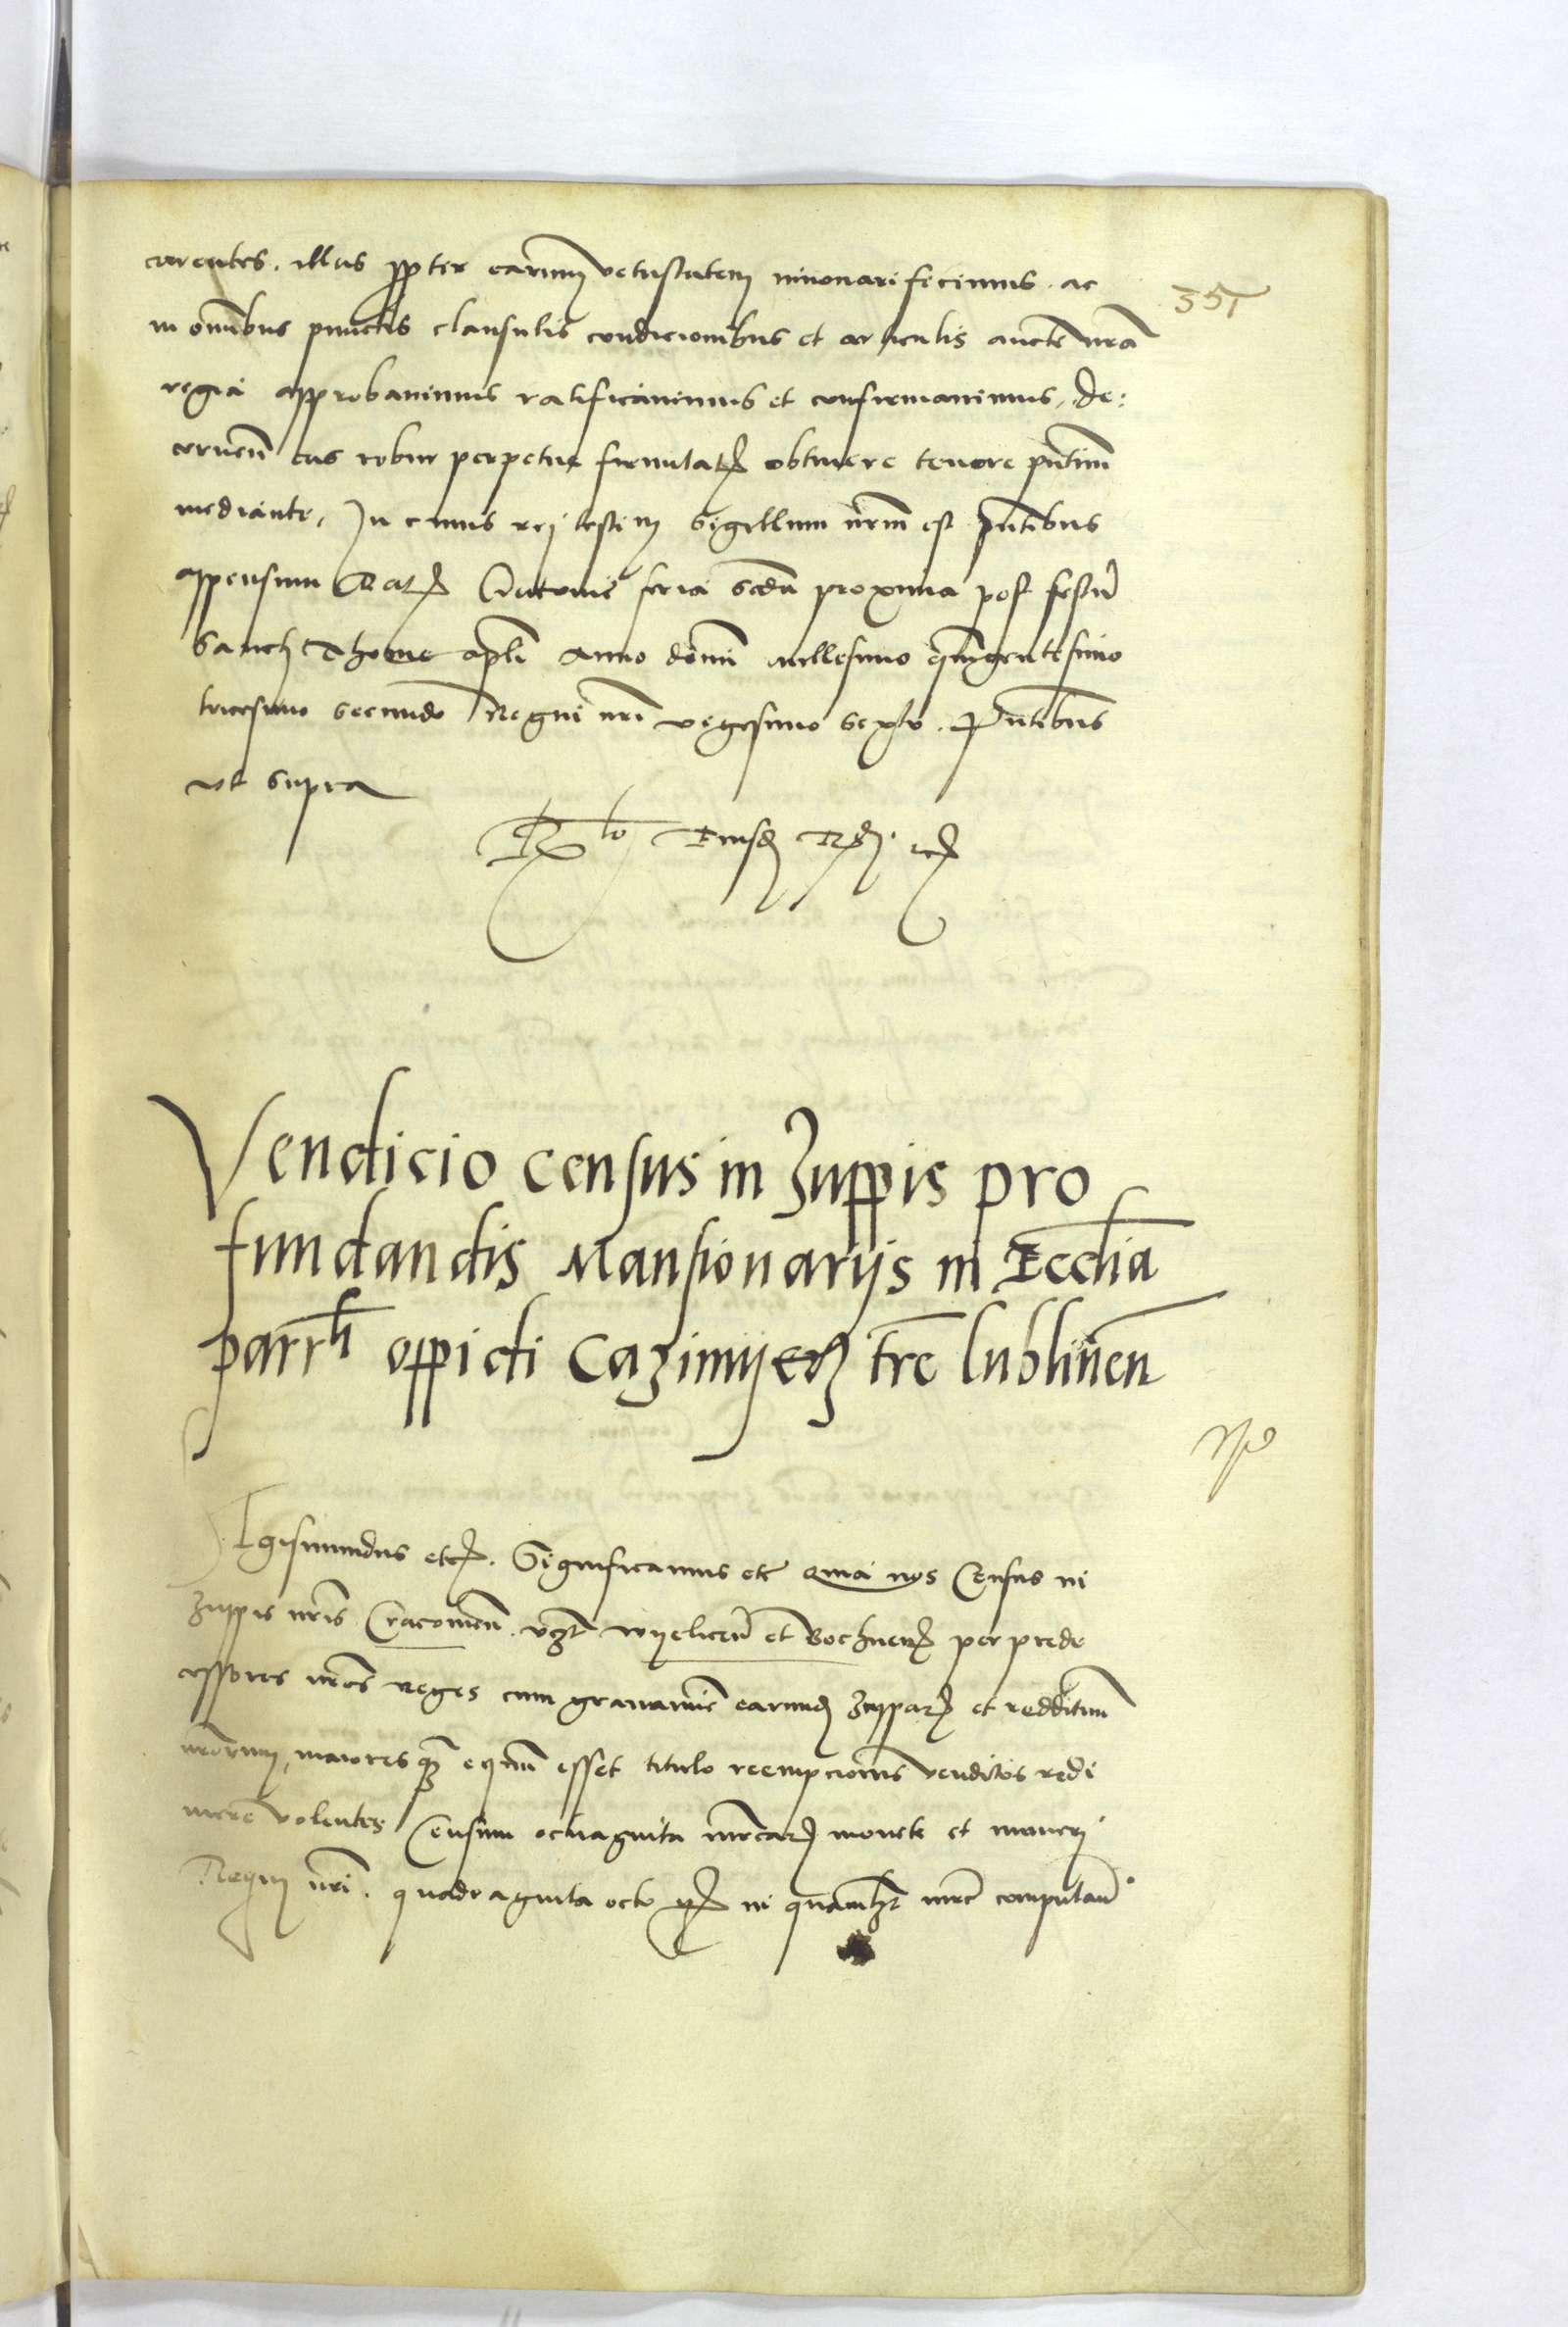 carentes. illas ꝓpter earum vetustatem innouari fecimus. ac
351
in om̄ibus punctis clausulis condicionibus et articulis aucte nr̄a
regia approbauimus ratificauimus et confirmauimus, de:
cernen̄ eas robur perpetue firmitatꝭ obtinere tenore pn̄tium̄
mediante, In cuius rei testim̄ sigillum nr̄m̄ est pn̄tibus
appensum Datꝭ Cracouie feria scd̄a proxima post festū
sancti Thome apl̄i Anno domī millesimo quīngentesimo
tricesimo secundo Regni nr̄i vigesimo sexto. Pn̄tibus
vt supra
Rlo Eiusdꝫ
Vendicio census in Zuppis pro
fundandis Mansionarijs in Eccl̄ia
parrh̄ oppidi Cazimijerꝫ tr̄e lublinen̄
Igismundus etcꝭ. Significamus etc̄ Quia nos Census in
zuppis nr̄is Cracouien̄. vꝫt wyelicen̄ et Bochnenꝭ per prede
cessores nr̄os reges cum grauamīe earundꝫ zupparꝭ et reddituum̄
nr̄orum, maiores qꝫ equum̄ esset titulo reempcionis venditos redi
mere volentes Censum octuaginta mr̄carꝭ monete et numeri
Regni nr̄i. quadraginta octo gꝭ in quamlꝫt mr̄c̄ computan̄